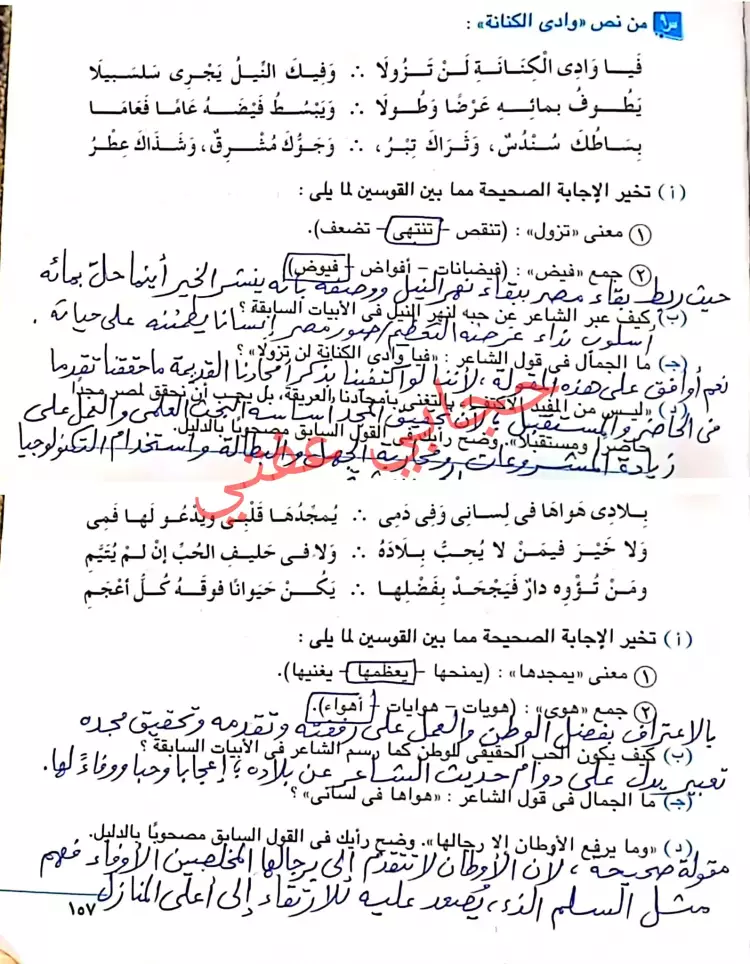 س٩ من نص «وادى الكنانة» :
فَيا وَادِى الْكِنَانَةِ لَنْ تَزُولَا ∴ وَفِيكَ النِّيلُ يَجْرِى سَلْسَبِيلَا
يَطُوفُ بمائِهِ عَرْضًا وَطُولَا ∴ وَيَبْسُطُ فَيْضَهُ عَامًا فَعَامَا
بِسَاطُكَ سُنْدُسٌ، وَثَرَاكَ تِبْرُ، ∴ وَجَوُّكَ مُشْرِقٌ، وَشَذَاكَ عِطْرُ
(أ) تخير الإجابة الصحيحة مما بين القوسين لما يلى :
١ معنى «تزول» : (تنقص – تنتهى – تضعف).
٢ جمع «فيض» : (فيضانات – أفواض – فيوض)
حيث ربط بقاء مصر ببقاء نهر النيل ووصفه بأنه ينشر الخير أينما حل بمائه
(ب) كيف عبر الشاعر عن حبه لنهر النيل فى الأبيات السابقة ؟
أسلوب نداء غرضه التعظيم / صور مصر إنسانا يطمئنه على حياته .
(جـ) ما الجمال فى قول الشاعر : «فيا وادى الكنانة لن تزولا» ؟
نعم أوافق على هذه المقولة ، لأننا لو اكتفينا بذكر أمجادنا القديمة ما حققنا تقدما
(د) «ليس من المفيد الاكتفاء بالتغنى بأمجادنا العريقة، بل يجب أن نحقق لمصر مجدًا
فى الحاضر والمستقبل ، لأن تحقيق المجد أساسه البحث العلمى والعمل على
حاضرًا ومستقبلًا». وضح رأيك فى القول السابق مصحوبًا بالدليل.
زيادة المشروعات ومحاربة الجهل والبطالة واستخدام التكنولوجيا
حجابي عفتي
بِلادِى هَواهَا فى لِسانِى وَفِى دَمِى ∴ يُمجِّدُهَا قَلْبِى وَيَدْعُو لَهَا فَمِى
وَلَا خَيْرَ فيمَنْ لَا يُحِبُّ بِلَادَهُ ∴ وَلا فى حَلِيفِ الحُبِّ إنْ لَمْ يُتَيَّمِ
ومَنْ تُؤْوِهِ دارٌ فَيَجْحَدْ بِفَضْلِها ∴ يَكُنْ حَيَوَانًا فوقَهُ كُلُّ أعْجَمِ
(أ) تخير الإجابة الصحيحة مما بين القوسين لما يلى :
١ معنى «يمجدها» : (يمنحها – يعظمها – يغنيها).
٢ جمع «هوى» : (هويات – هوايات – أهواء).
بالاعتراف بفضل الوطن والعمل على رفعته وتقدمه وتحقيق مجده
(ب) كيف يكون الحب الحقيقى للوطن كما رسم الشاعر فى الأبيات السابقة ؟
تعبير يدل على دوام حديث الشاعر عن بلاده ؛ إعجابا وحبا ووفاءً لها.
(جـ) ما الجمال فى قول الشاعر : «هواها فى لسانى» ؟
(د) «وما يرفع الأوطان إلا رجالها». وضح رأيك فى القول السابق مصحوبًا بالدليل.
مقولة صحيحة ، لأن الأوطان لا تتقدم إلى برجالها المخلصين الأوفاء فهم
مثل السلم الذى يُصعد عليه للارتقاء إلى أعلى المنازل
١٥٧